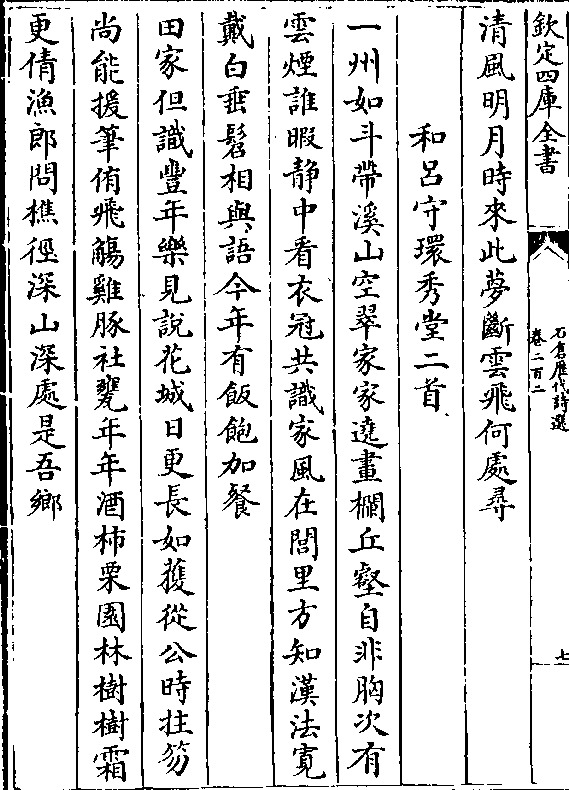 欽定四庫全書
石倉歷代詩選
卷二百二
七
清風明月時來此夢斷雲飛何處尋
和呂守環秀堂二首
一州如斗帶溪山空翠家家遶畫欄丘壑自非胸次有
雲煙誰暇静中看衣冠共識家風在閭里方知漢法寛
戴白垂髫相與語今年有飯飽加餐
田家但識豐年樂見說花城日更長如獲從公時拄笏
尚能援筆侑飛觴雞豚社甕年年酒柿栗園林樹樹霜
更倩漁郎問樵徑深山深處是吾鄉